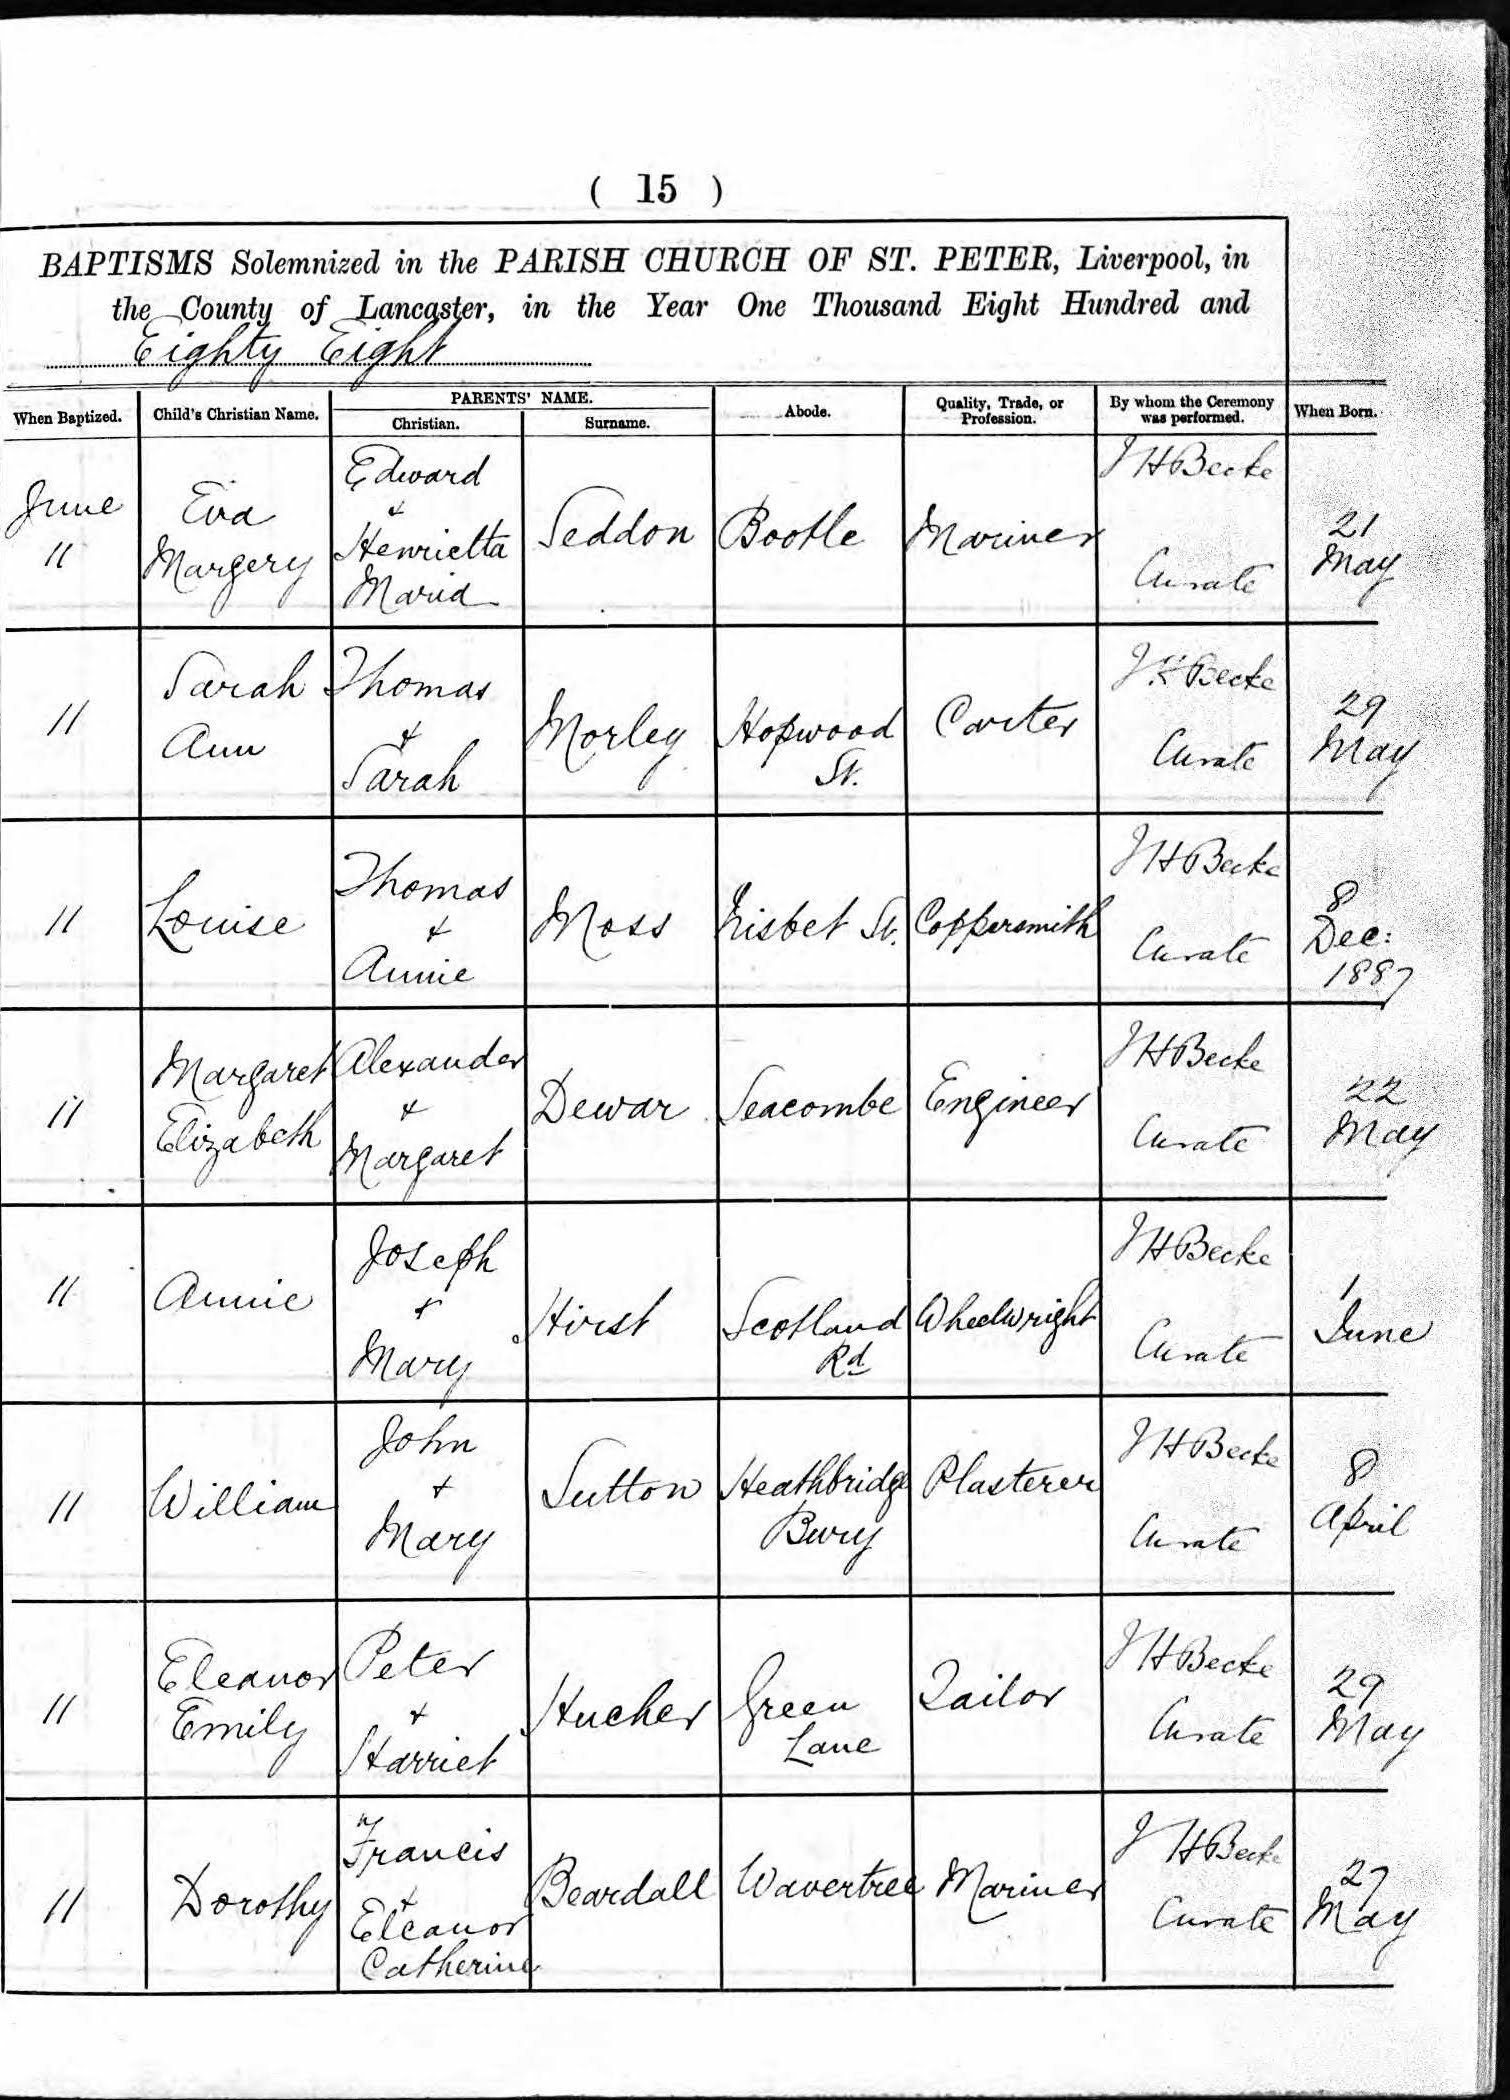 ( 15 )
BAPTISMS Solemnized in the PARISH CHURCH OF ST. PETER, Liverpool, in
the County of Lancaster, in the Year One Thousand Eight Hundred and
Eighty Eight
When Baptized. Child's Christian Name. PARENTS' NAME. Christian. Surname. Abode. Quality, Trade, or Profession. By whom the Ceremony was performed. When Born.
June 11 Eva Margery Edward + Henrietta Maria Seddon Bootle Mariner J H Becke Curate 21 May
11 Sarah Ann Thomas + Sarah Morley Hopwood St. Carter J H Becke Curate 29 May
11 Louise Thomas + Annie Moss Nisbet St. Coppersmith J H Becke Curate 8 Dec: 1887
11 Margaret Elizabeth Alexander + Margaret Dewar Seacombe Engineer J H Becke Curate 22 May
11 Annie Joseph + Mary Hirst Scotland Rd Wheelwright J H Becke Curate 1 June
11 William John + Mary Sutton Heathbridge Bury Plasterer J H Becke Curate 8 April
11 Eleanor Emily Peter + Harriet Hucher Green Lane Tailor J H Becke Curate 29 May
11 Dorothy Francis + Eleanor Catherine Beardall Wavertree Mariner J H Becke Curate 27 May